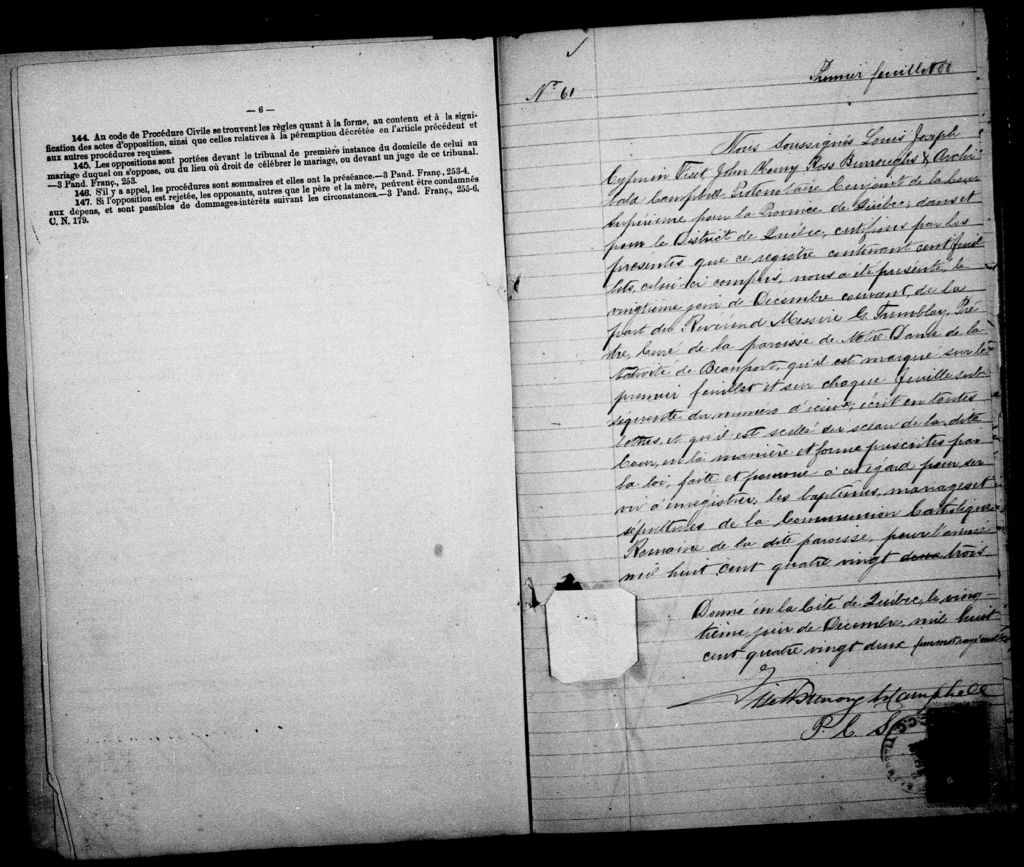 — 6 —
144. Au code de Procédure Civile se trouvent les règles quant à la forme, au contenu et à la signi-
fication des actes d'opposition, ainsi que celles relatives à la péremption décrétée en l'article précédent et
aux autres procédures requises.
145. Les oppositions sont portées devant le tribunal de première instance du domicile de celui au
mariage duquel on s'oppose, ou du lieu où droit de célébrer le mariage, ou devant un juge de ce tribunal.
—3 Pand. Franç., 253.
146. S'il y a appel, les procédures sont sommaires et elles ont la préséance.—3 Pand. Franç., 253-4.
147. Si l'opposition est rejetée, les opposants, autres que le père et la mère, peuvent être condamnés
aux dépens, et sont passibles de dommages-intérêts suivant les circonstances.—3 Pand. Franç., 255-6.
C. N. 179.
Premier feuillet
No 61
Nous Soussignés Louis Joseph
Cyprien Fiset, John Henry Ross Burroughs & Archi
bald Campbell, Protonotaire Conjoint de la Cour
Supérieure pour la Province de Québec, dans et
pour le District de Québec, certifions par les
présentes que ce registre contenant cent feuil
lets, celui-ci compris, nous a été présenté, le
vingtième jour de Décembre courant, de la
part du Révérend Messire G. Tremblay, Prê
tre, Curé de la paroisse de Notre Dame de la
Nativité de Beauport, qu'il est marqué sur le
premier feuillet et sur chaque feuille subsé
séquente du numéro d'iceux, écrit en toutes
lettres, et qu'il est scellé du sceau de la dite
Cour, en la manière et forme prescrites par
la loi, faite et pourvue à cet égard pour ser
vir à enregistrer, les baptêmes, mariages et
sépultures de la Communion Catholique
Romaine de la dite paroisse, pour l'année
mil huit cent quatre vingt deux trois
Donné en la Cité de Québec, le ving-
tième jour de Décembre, mil huit
cent quatre vingt deux
Fiset Burroughs Campbell
P. C. S.